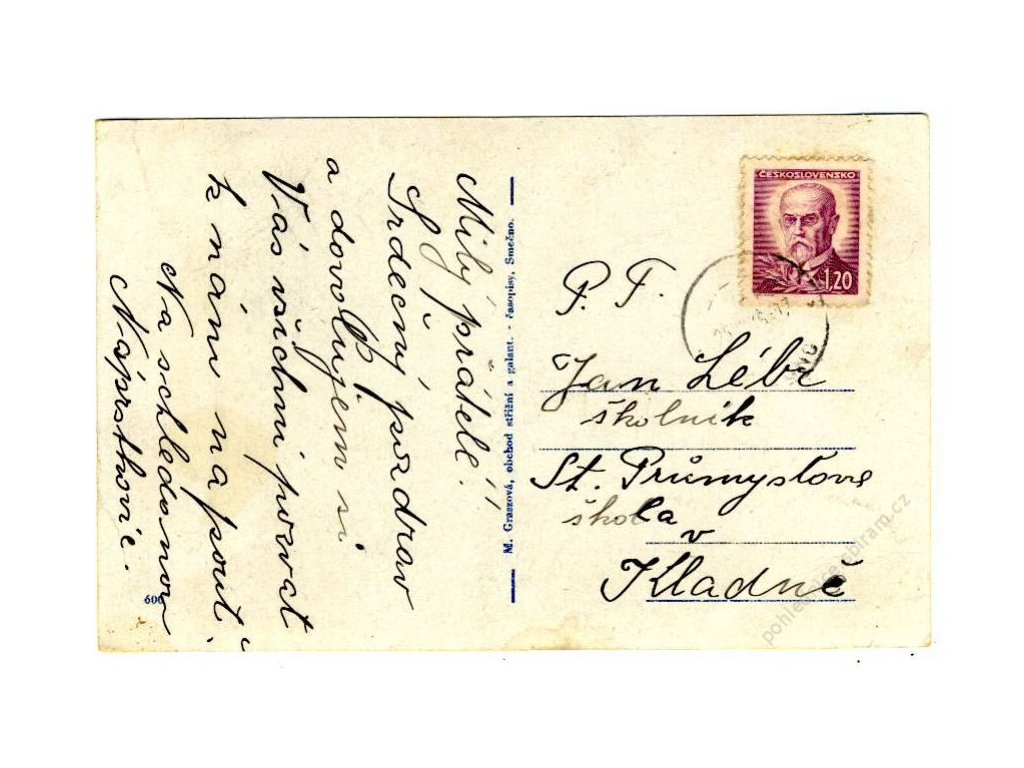 Milý přátelé!
Srdečný pozdrav
a dovolujem si
Vás všichni pozvat
k nám na pouť.
Na schledanou
Náprstkovic.
M. Graszová, obchod střižní a galant. - časopisy, Smečno.
600
ČESKOSLOVENSKO
1,20
P. T.
Jan Lébr
školník
St. Průmyslové
škola
v
Kladně
pohlednice.sbiram.cz